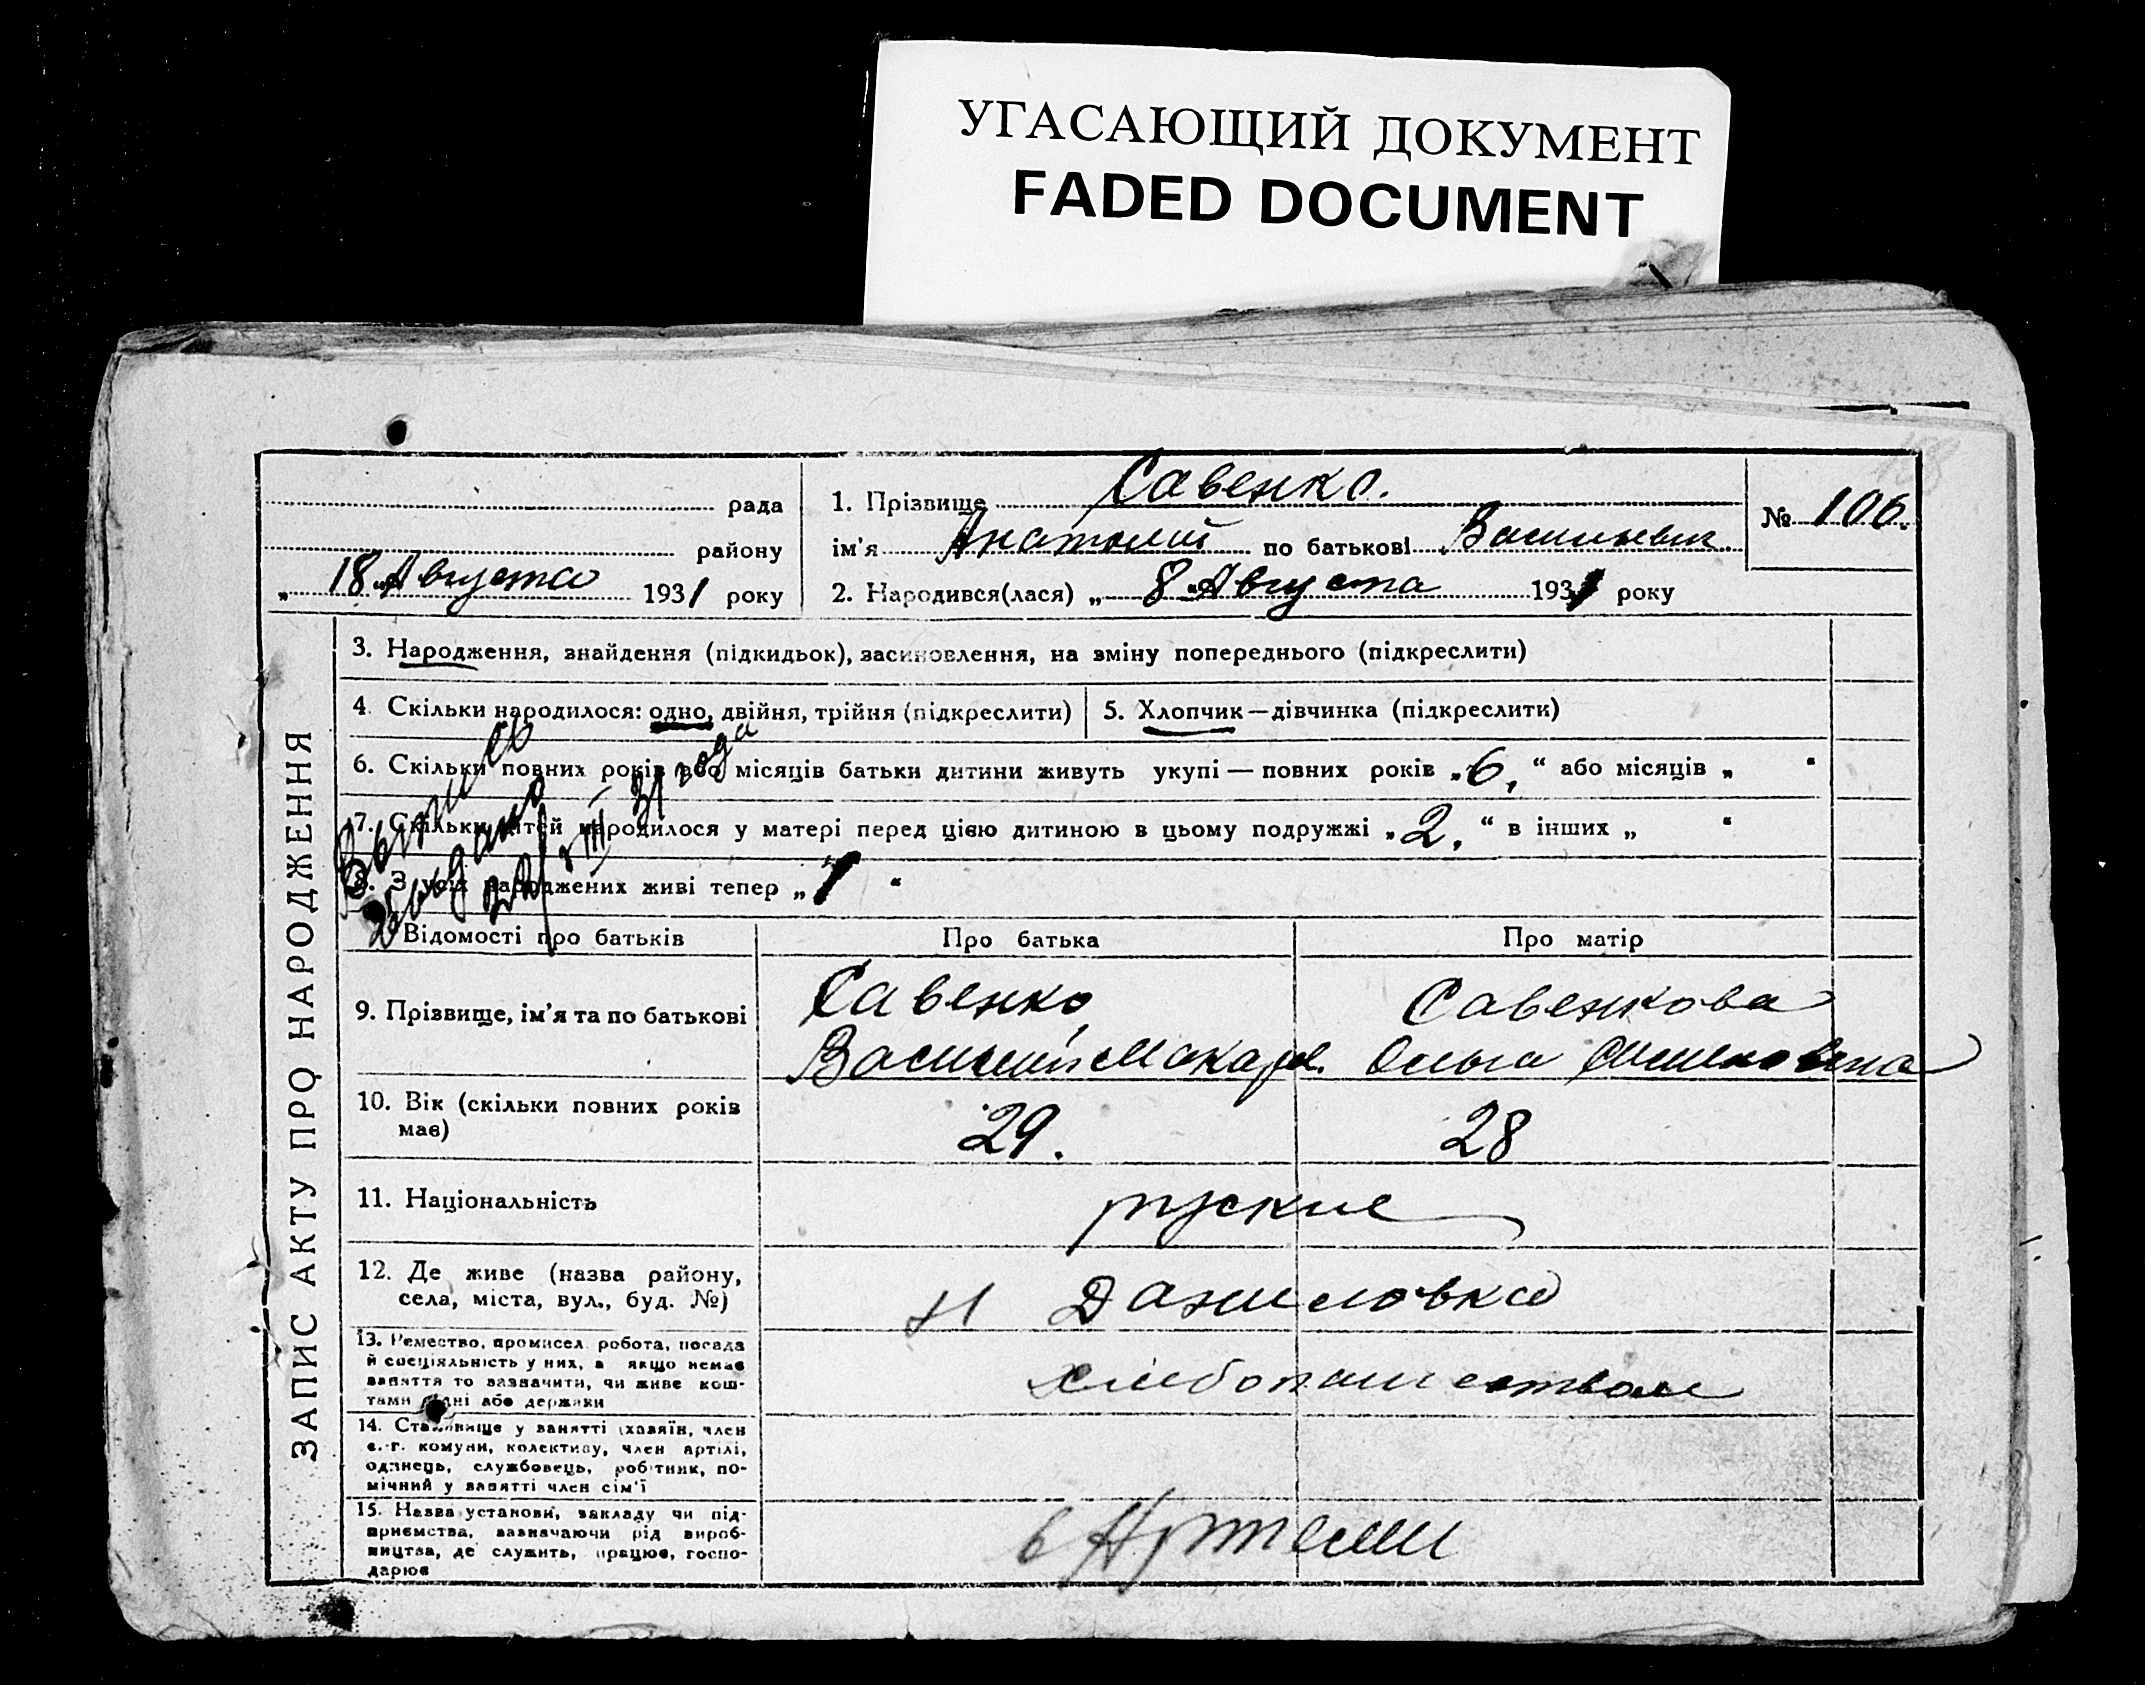 УГАСАЮЩИЙ ДОКУМЕНТ
FADED DOCUMENT
рада
району
„ 18 " Августа 1931 року
1. Прізвище Савенко.
ім'я Анатолий по батькові Васильевич
2. Народився(лася) „ 8 " Августа 1931 року
№ 106.
ЗАПИС АКТУ ПРО НАРОДЖЕННЯ
3. Народження, знайдення (підкидьок), засиновлення, на зміну попереднього (підкреслити)
4. Скільки народилося: одно, двійня, трійня (підкреслити)
5. Хлопчик—дівчинка (підкреслити)
6. Скільки повних років або місяців батьки дитини живуть укупі — повних років „ 6, “ або місяців „ “
7. Скільки дітей народилося у матері перед цією дитиною в цьому подружжі „ 2. “ в інших „ “
8. З усіх народжених живі тепер „ 1 “
31 года
Відомості про батьків
Про батька
Про матір
9. Прізвище, ім'я та по батькові
Савенко
Василий Макар.
Савенкова
Ольга
10. Вік (скільки повних років
має)
29.
28
11. Національність
руские
12. Де живе (назва району,
села, міста, вул., буд. №)
Н Даниловка
13. Ремество, промисел робота, посада
й спеціяльність у них, а якщо немає
заняття то зазначити, чи живе кош-
тами рідні або держави
хлебопашеством
14. Становище у занятті (хазяїн, член
с.-г. комуни, колективу, член артілі,
одинець, службовець, робітник, по-
мічний у занятті член сім'ї
15. Назва установи, закладу чи під-
приємства, зазначаючи рід вироб-
ництва, де служить, працює, госпо-
дарює
в Артели